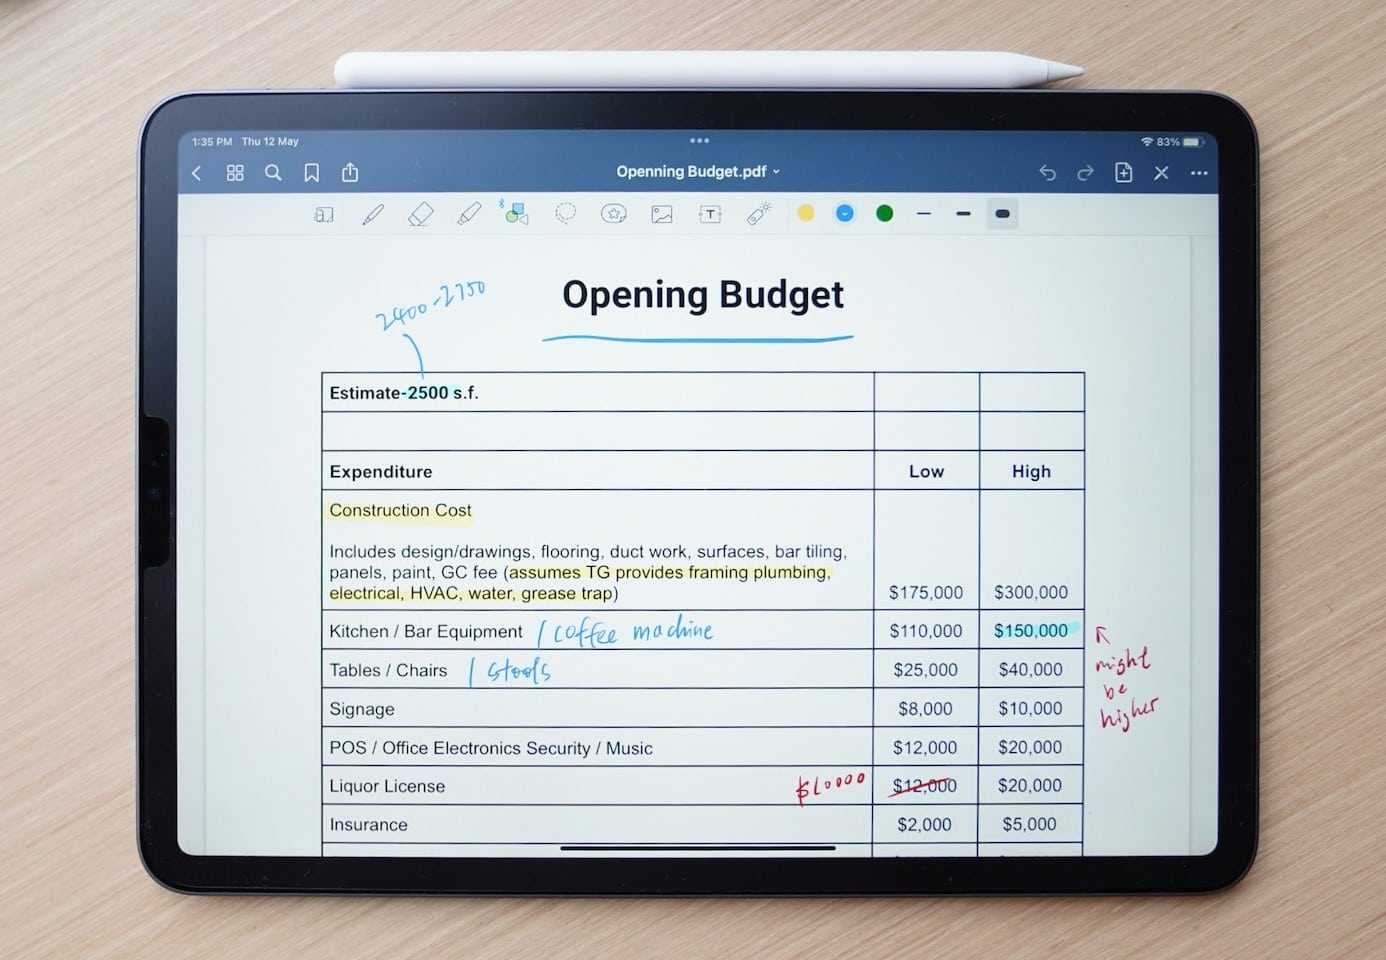 1:35 PM Thu 12 May
83%
Openning Budget.pdf
T
2400-2750
Opening Budget
Estimate-2500 s.f.
Expenditure Low High
Construction Cost
Includes design/drawings, flooring, duct work, surfaces, bar tiling,
panels, paint, GC fee (assumes TG provides framing plumbing,
electrical, HVAC, water, grease trap) $175,000 $300,000
Kitchen / Bar Equipment / coffee machine $110,000 $150,000
Tables / Chairs / stools $25,000 $40,000
might
be
higher
Signage $8,000 $10,000
POS / Office Electronics Security / Music $12,000 $20,000
Liquor License $10000 $12,000 $20,000
Insurance $2,000 $5,000